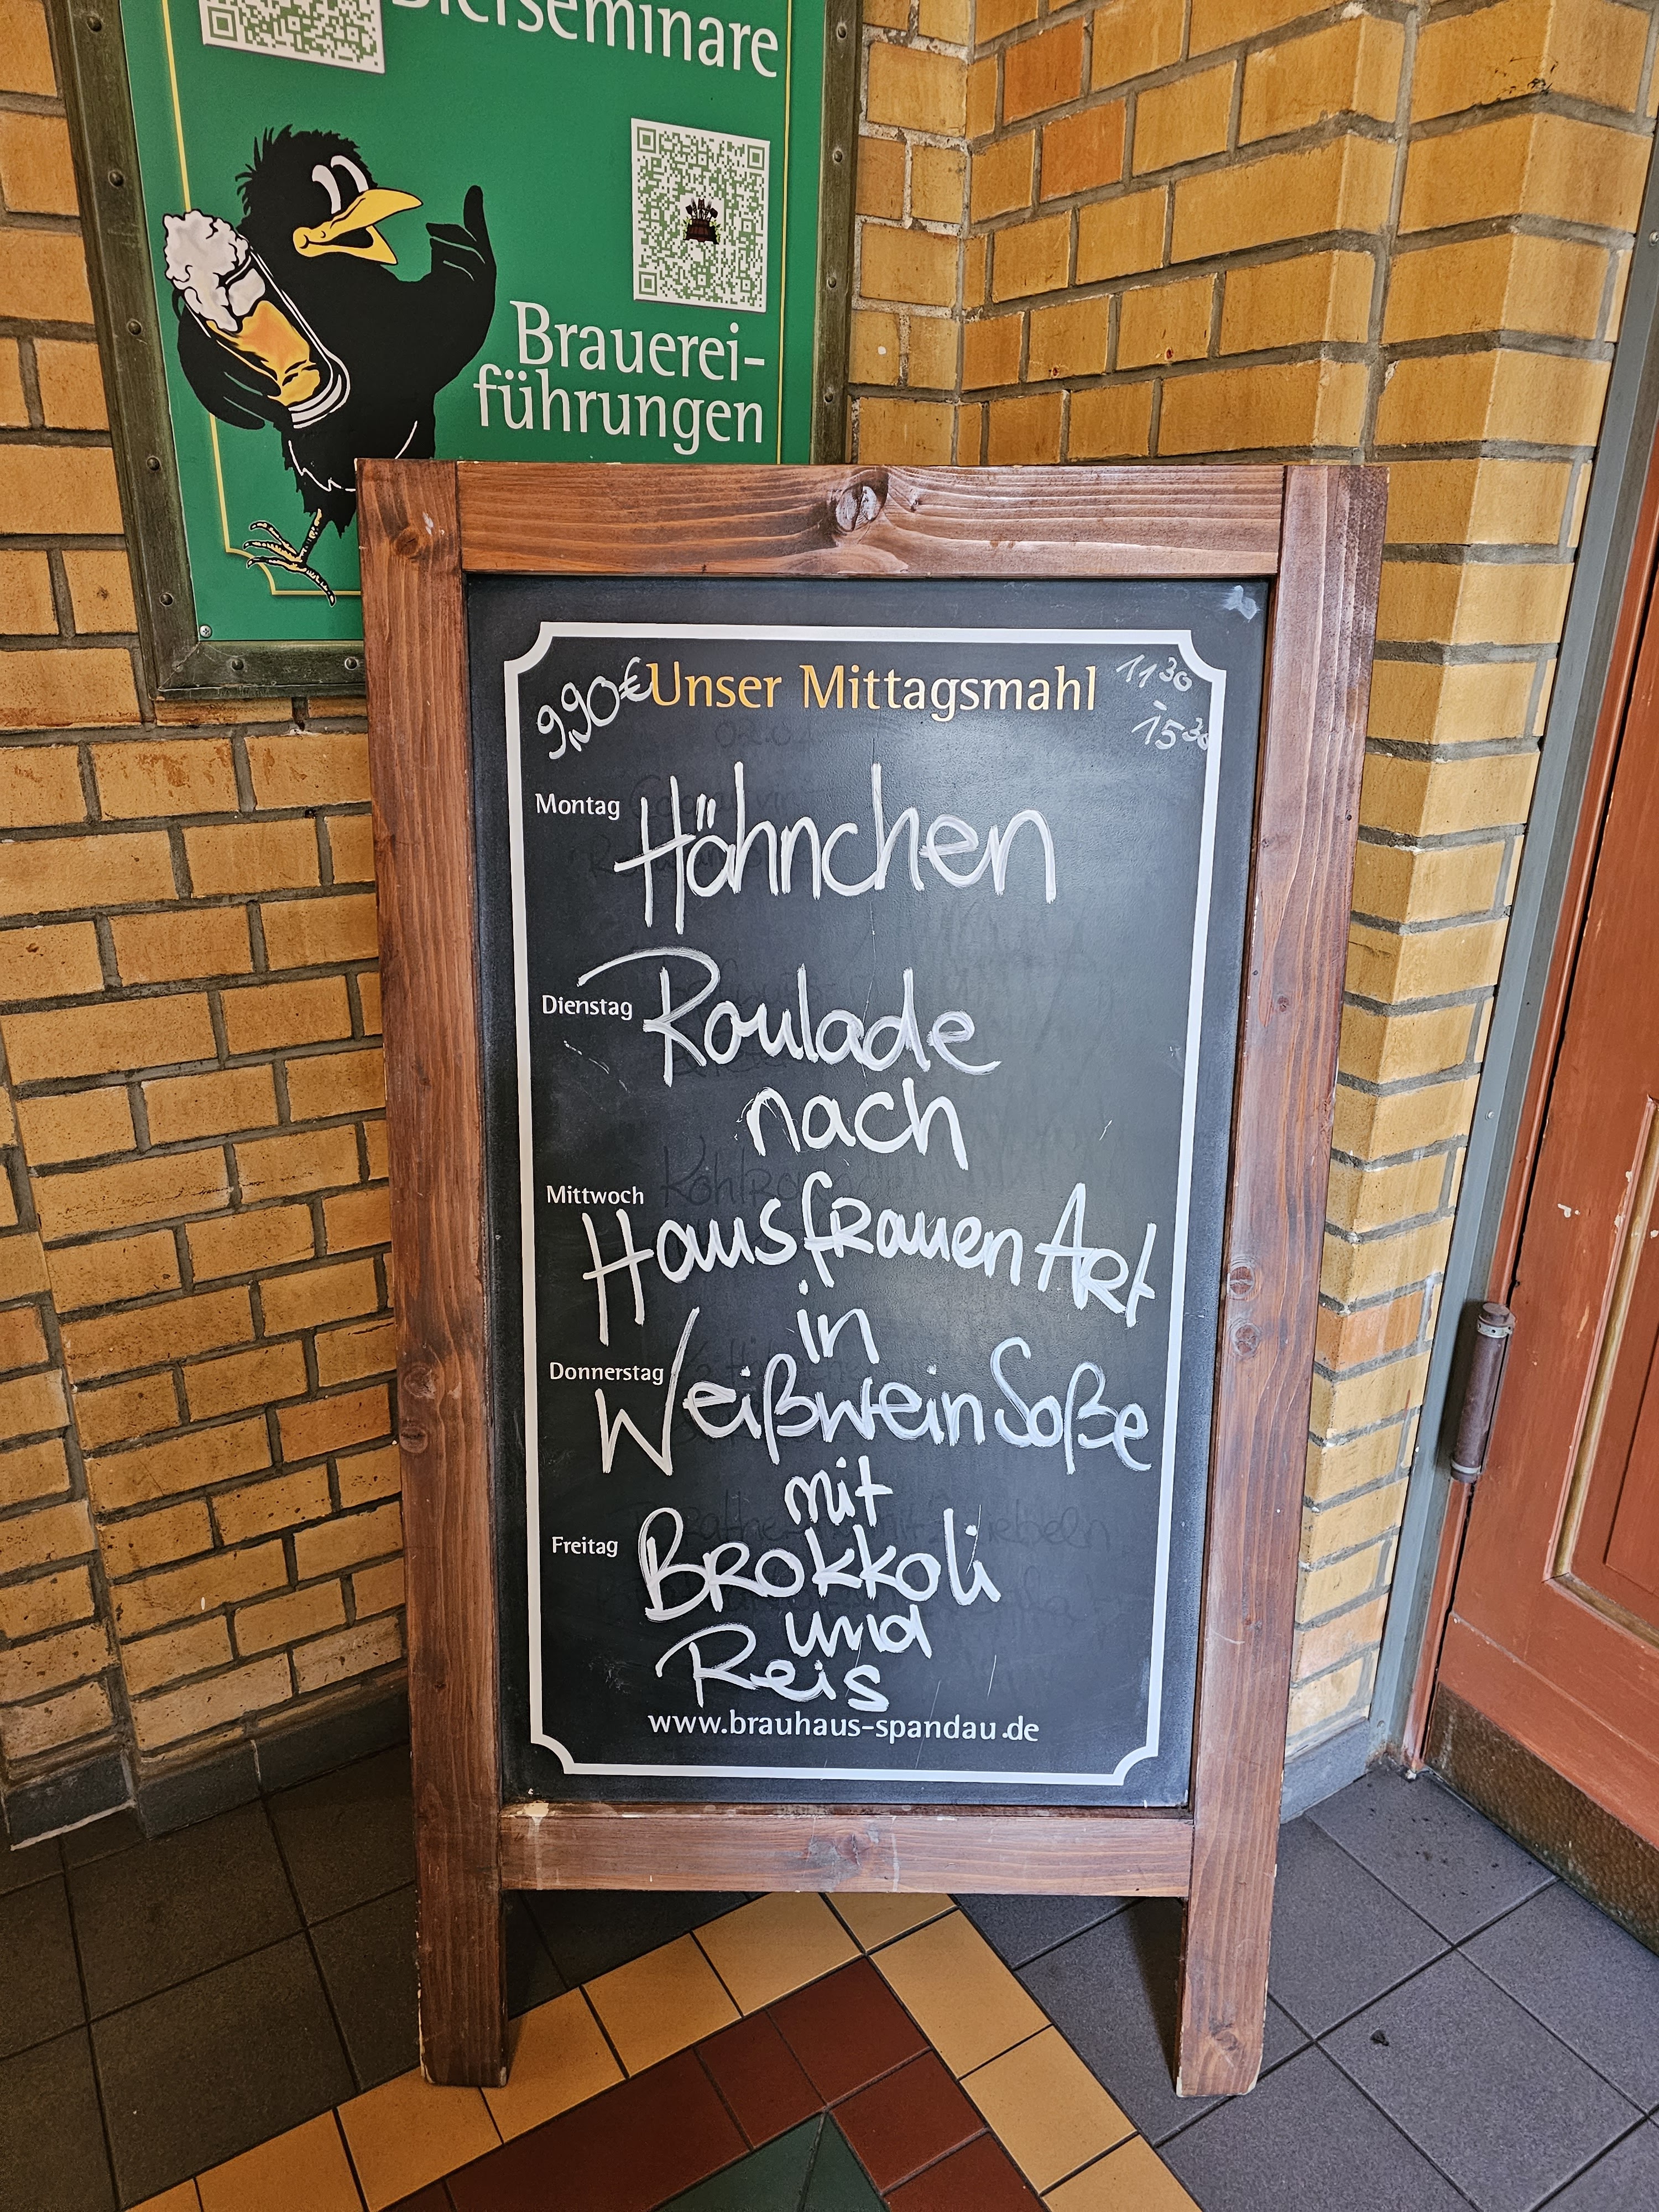 Bierseminare
Brauerei-
führungen
9,90€ Unser Mittagsmahl 11³⁰
- 15³⁰
Montag Hähnchen
Dienstag Roulade
nach
Mittwoch
Hausfrauen Art
in
Donnerstag Weißwein Soße
mit
Freitag Brokkoli
und
Reis
www.brauhaus-spandau.de